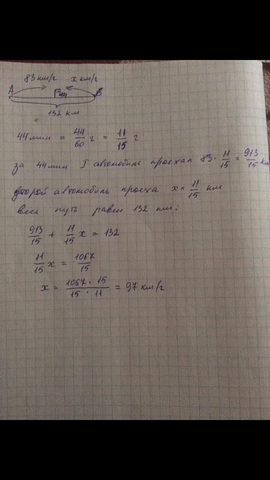 83 км/г x км/г
A B
132 км
44 мин = 44/60 г = 11/15 г
за 44 мин I автомобиль проехал 83 · 11/15 = 913/15 км
второй автомобиль проехал x · 11/15 км
весь путь равен 132 км:
913/15 + 11/15 x = 132
11/15 x = 1067/15
x = 1067 · 15 / 15 · 11 = 97 км/г